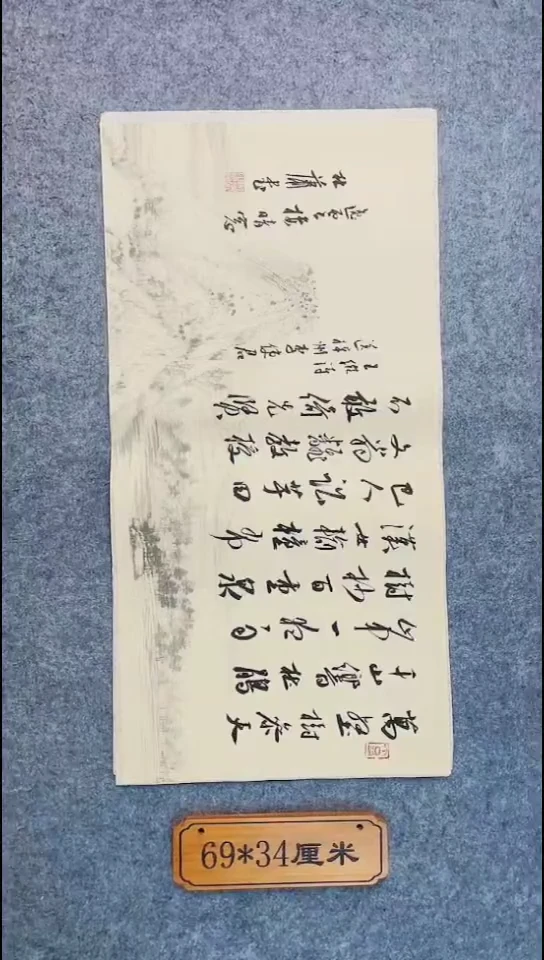 萬壑樹參天
千山響杜鵑
山中一
樹杪百重泉
漢女輸橦布
巴人訟芋田
文翁翻教授
不敢倚先賢
王維詩
送梓州李使君
69*34厘米